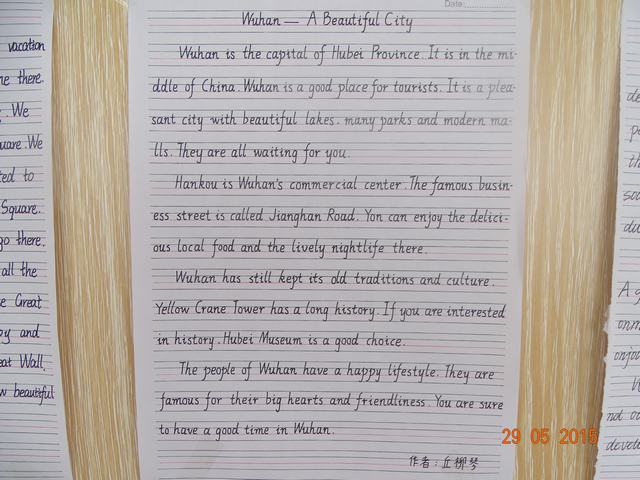 Date:
Wuhan — A Beautiful City
Wuhan is the capital of Hubei Province. It is in the mi-
ddle of China. Wuhan is a good place for tourists. It is a plea-
sant city with beautiful lakes. many parks and modern ma-
lls. They are all waiting for you.
Hankou is Wuhan's commercial center. The famous busin-
ess street is called Jianghan Road. Yon can enjoy the delici-
ous local food and the lively nightlife there.
Wuhan has still kept its old traditions and culture.
Yellow Crane Tower has a long history. If you are interested
in history. Hubei Museum is a good choice.
The people of Wuhan have a happy lifestyle. They are
famous for their big hearts and friendliness. You are sure
to have a good time in Wuhan.
作者：丘柳琴
vacation
there.
We
We
to
Square.
go there.
all the
Great
and
Wall.
beautiful
A
29 05 2015